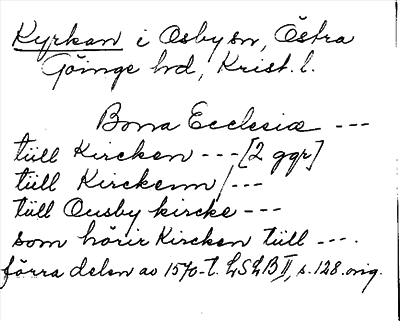 Kyrkan i Osby sn, Östra
Göinge hd, Krist. l.
Bona Ecclesiæ ---
tüll Kircken --- [2 ggr]
tüll Kirckenn / ---
tüll Ousby kircke ---
som hörir Kircken tüll ---.
förra delen av 1570-t. LSLB II, s. 128. orig.